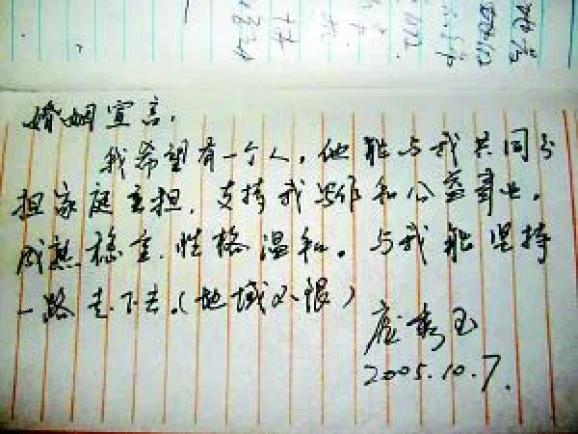 婚姻宣言:
我希望有一个人,他能与我共同分
担家庭重担,支持我写作和公益事业,
成熟稳重,性格温和。与我能坚持
一路走下去。(地域不限)
秀玉
2005.10.7.